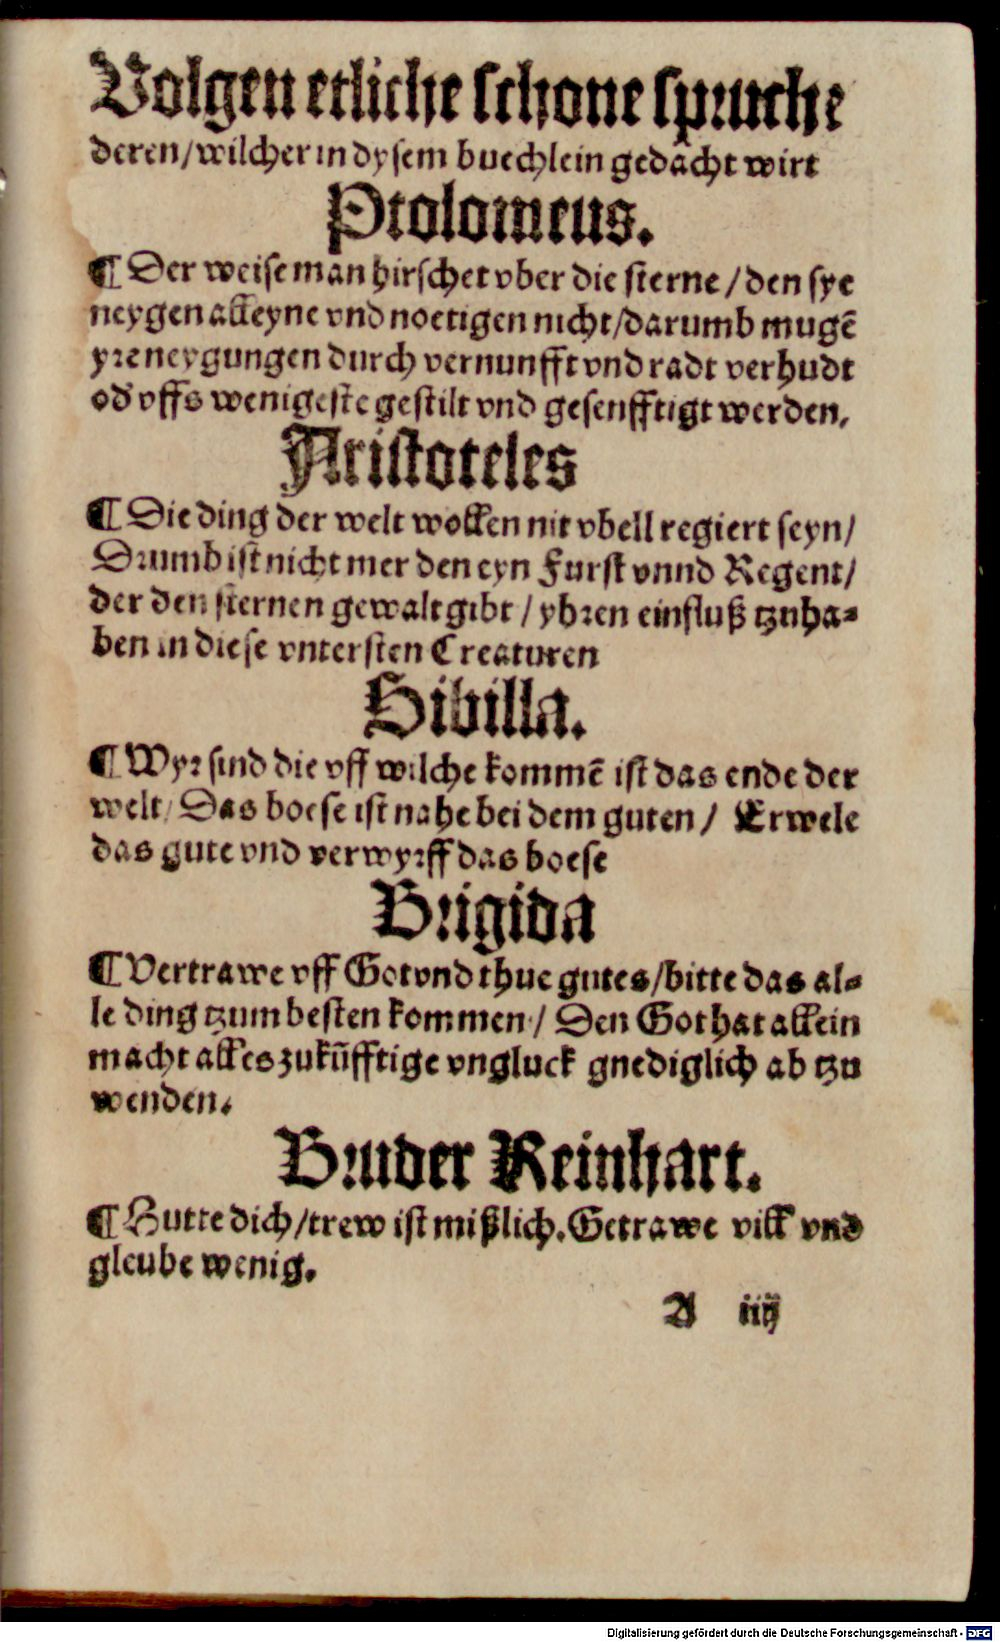 Volgen etliche schone spruche
deren/wilcher in dysem buechlein gedacht wirt
Ptolomeus.
¶ Der weise man hirschet vber die sterne/den sye
neygen alleyne vnd noetigen nicht/darumb mugē
yre neygungen durch vernunfft vnd radt verhudt
od' vffs wenigeste gestilt vnd gesenfftigt werden.
Aristoteles
¶ Die ding der welt wollen nit vbell regiert seyn/
Drumb ist nicht mer den eyn Furst vnnd Regent/
der den sternen gewalt gibt/yhren einfluß tzuha-
ben in diese vntersten Creaturen
Sibilla.
¶ Wyr sind die vff wilche kommē ist das ende der
welt/Das boese ist nahe bei dem guten/ Erwele
das gute vnd verwyrff das boese
Brigida
¶ Vertrawe vff Got vnd thue gutes/bitte das al-
le ding tzum besten kommen/ Den Got hat allein
macht alles zukūfftige vngluck gnediglich ab tzu
wenden.
Bruder Reinhart.
¶ Hutte dich/trew ist mißlich. Getrawe vill vnd
gleube wenig.
A iij
Digitalisierung gefördert durch die Deutsche Forschungsgemeinschaft - DFG